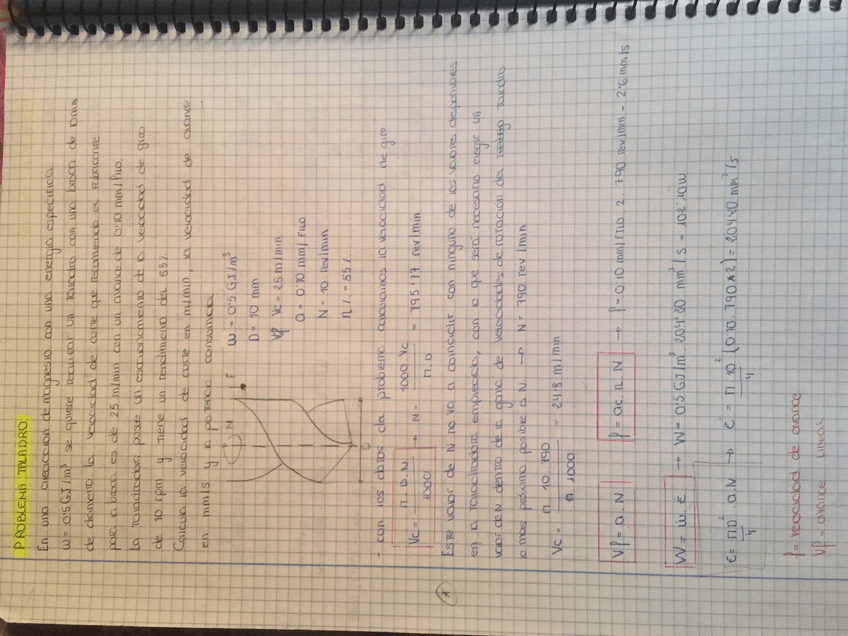 PROBLEMA TALADRO:
En una aleacion de magnesio con una energia especifica
w = 0'5 GJ/m³ se quiere realizar un taladro con una broca de 10mm
de diametro la velocidad de corte que recomienda el fabricante
para la broca es de 25 m/min con un avance de 0'10 mm/filo.
La taladradora posee un escalonamiento de la velocidad de giro
de 10 rpm y tiene un rendimiento del 85%.
Calcula la velocidad de corte en m/min, la velocidad de avance
en mm/s y la potencia consumida.
N
F
D
w = 0'5 GJ/m³
D = 10 mm
Vc = 25 m/min
a = 0'10 mm/FILO
N = 10 rev/min
η% = 85%
- con los datos del problema calculamos la velocidad de giro
Vc = π.D.N / 1000 → N = 1000 Vc / π.D = 795'77 rev/min
Este valor de N no va a coincidir con ninguno de los valores disponibles
en la taladradora empleada, con lo que será necesario elegir un
valor de N dentro de la gama de velocidades de rotacion del taladro
lo más próximo posible a N. → N = 790 rev/min
Vc = π.10.790 / 1000 = 24'8 m/min
Vf = a.N
f = ac.n.N → f = 0'10 mm/FILO 2 . 790 rev/min = 2'6 mm/s
W = w.ė → W = 0'5 GJ/m³. 204'20 mm³/s = 102'10 W
ė = πD²/4 a.N → ė = π.10²/4 (0'10.790*2) = 204'20 mm³/s
f = velocidad de avance
Vf = avance lineal